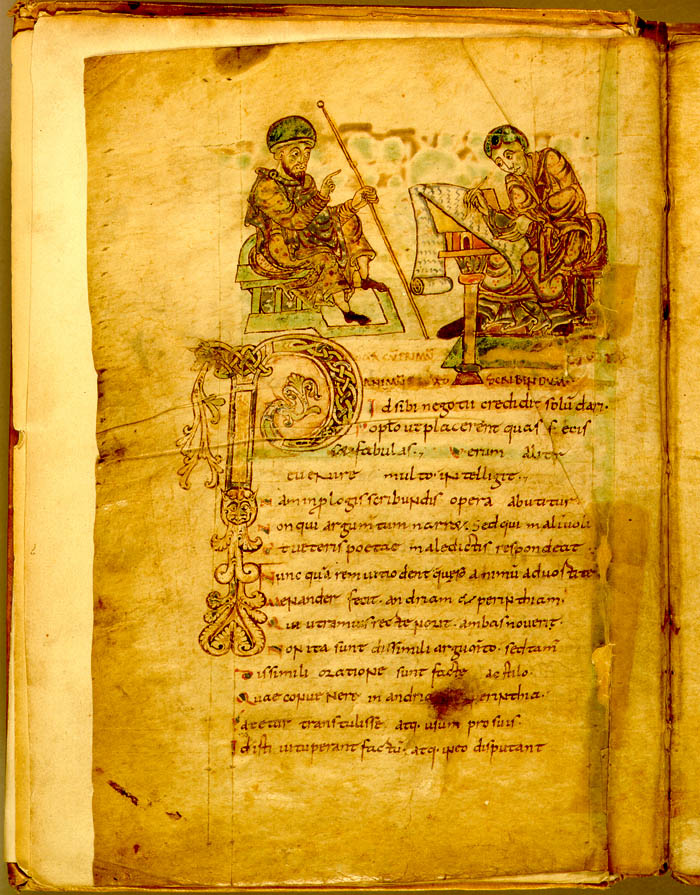 CŪ PRIMŪ
ANIMŪ AD SCRIBENDUM
Id sibi negotii credidit solū dari.
Poplo ut placerent quas fecis
s& fabulas., Verum aliter
evenire multo intelligit.,
Nam in plogis scribundis opera abutitur
Non qui argumtum narr&. Sed qui malivoli
veteris poetae maledictis respondeat
Nunc quā rem vitio dent queso animū advortite
Menander fecit. andriam & perinthiam.
Qui utramvis recte norit. ambas noverit.
Non ita sunt dissimili argumto. sed tam̄
Dissimili oratione sunt factae ac stilo.
Quae convenere in andria perinthia.
Fatetur transtulisse atq. usum pro suis.
Id isti vituperant factū. atq. in eo disputant